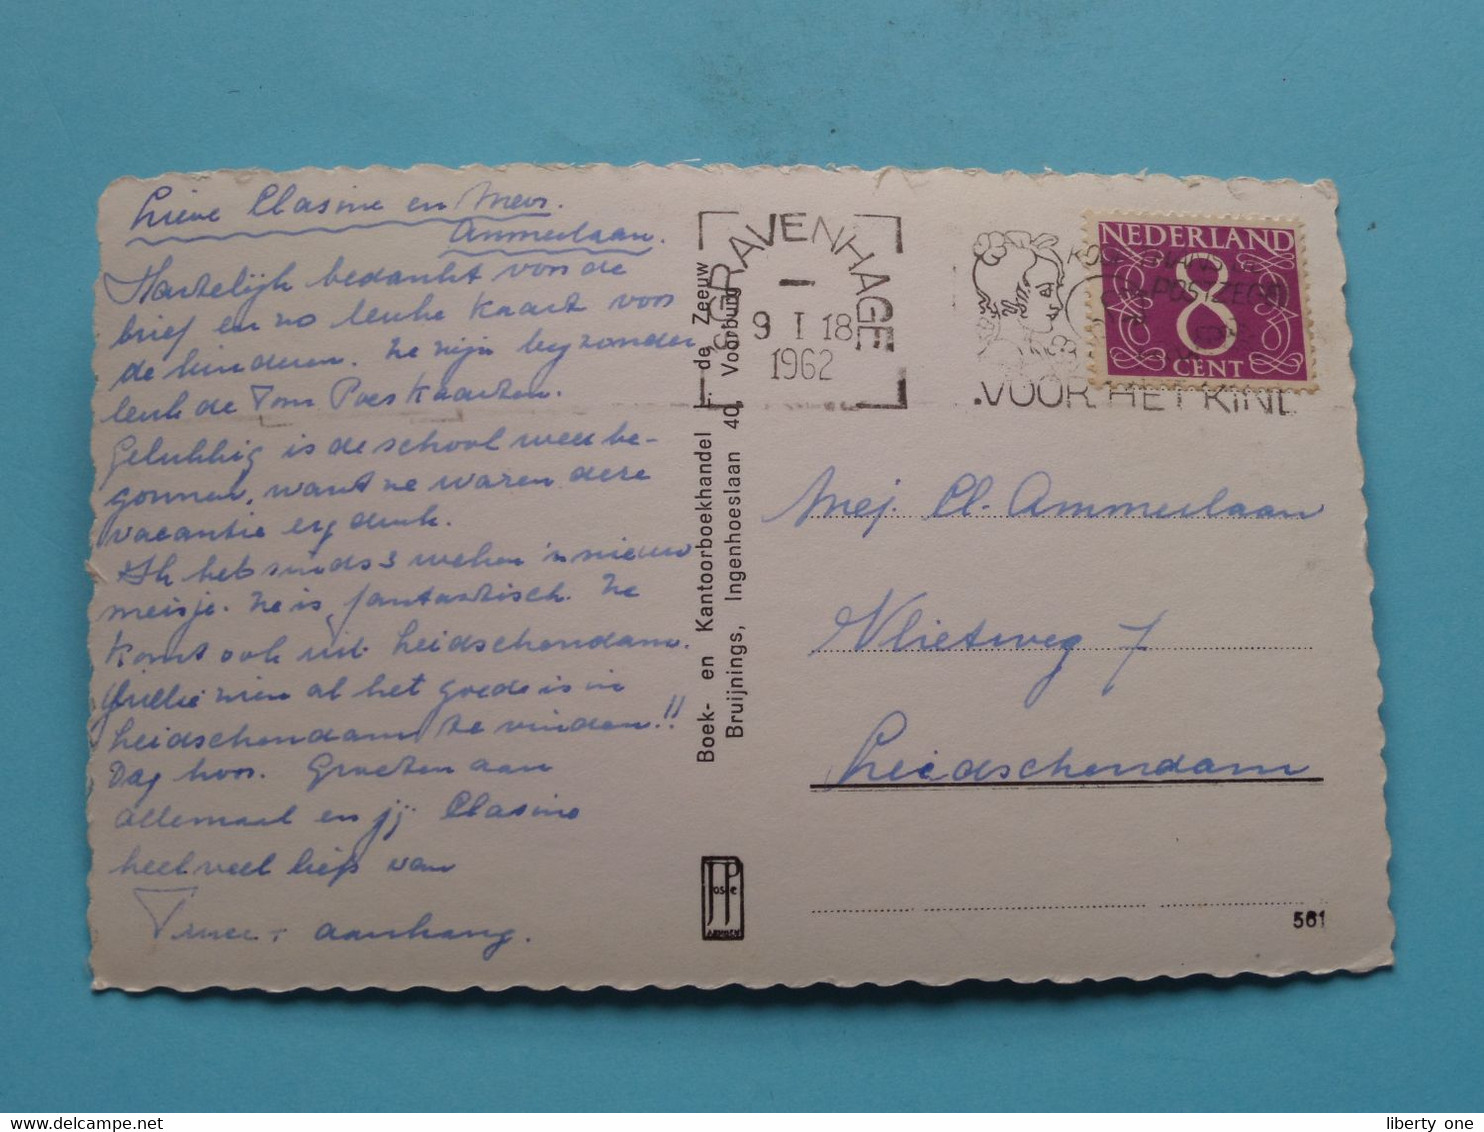 Lieve Clasine en Mevr.
Ammerlaan.
Hartelijk bedankt voor de
brief en zo leuke kaart voor
de kinderen. Ze zijn byzonder
leuk de Tom Poes kaarten.
Gelukkig is de school weer be-
gonnen, want ze waren deze
vacantie erg druk.
Ik heb sinds 3 weken 'n nieuw
meisje. Ze is fantastisch. Ze
komt ook uit Leidschendam.
Jullie zien al het goede is in
Leidschendam te vinden!!
Dag hoor. Groeten aan
allemaal en jij Clasine
heel veel liefs van
+ aanhang.
Boek- en Kantoorboekhandel L. de Zeeuw
Bruijnings, Ingenhoeslaan 40, Voorburg
'S GRAVENHAGE
9 I 18
1962
VOOR HET KIND
NEDERLAND
8
CENT
Mej. Cl. Ammerlaan
Vlietweg 7
Leidschendam
561
liberty one